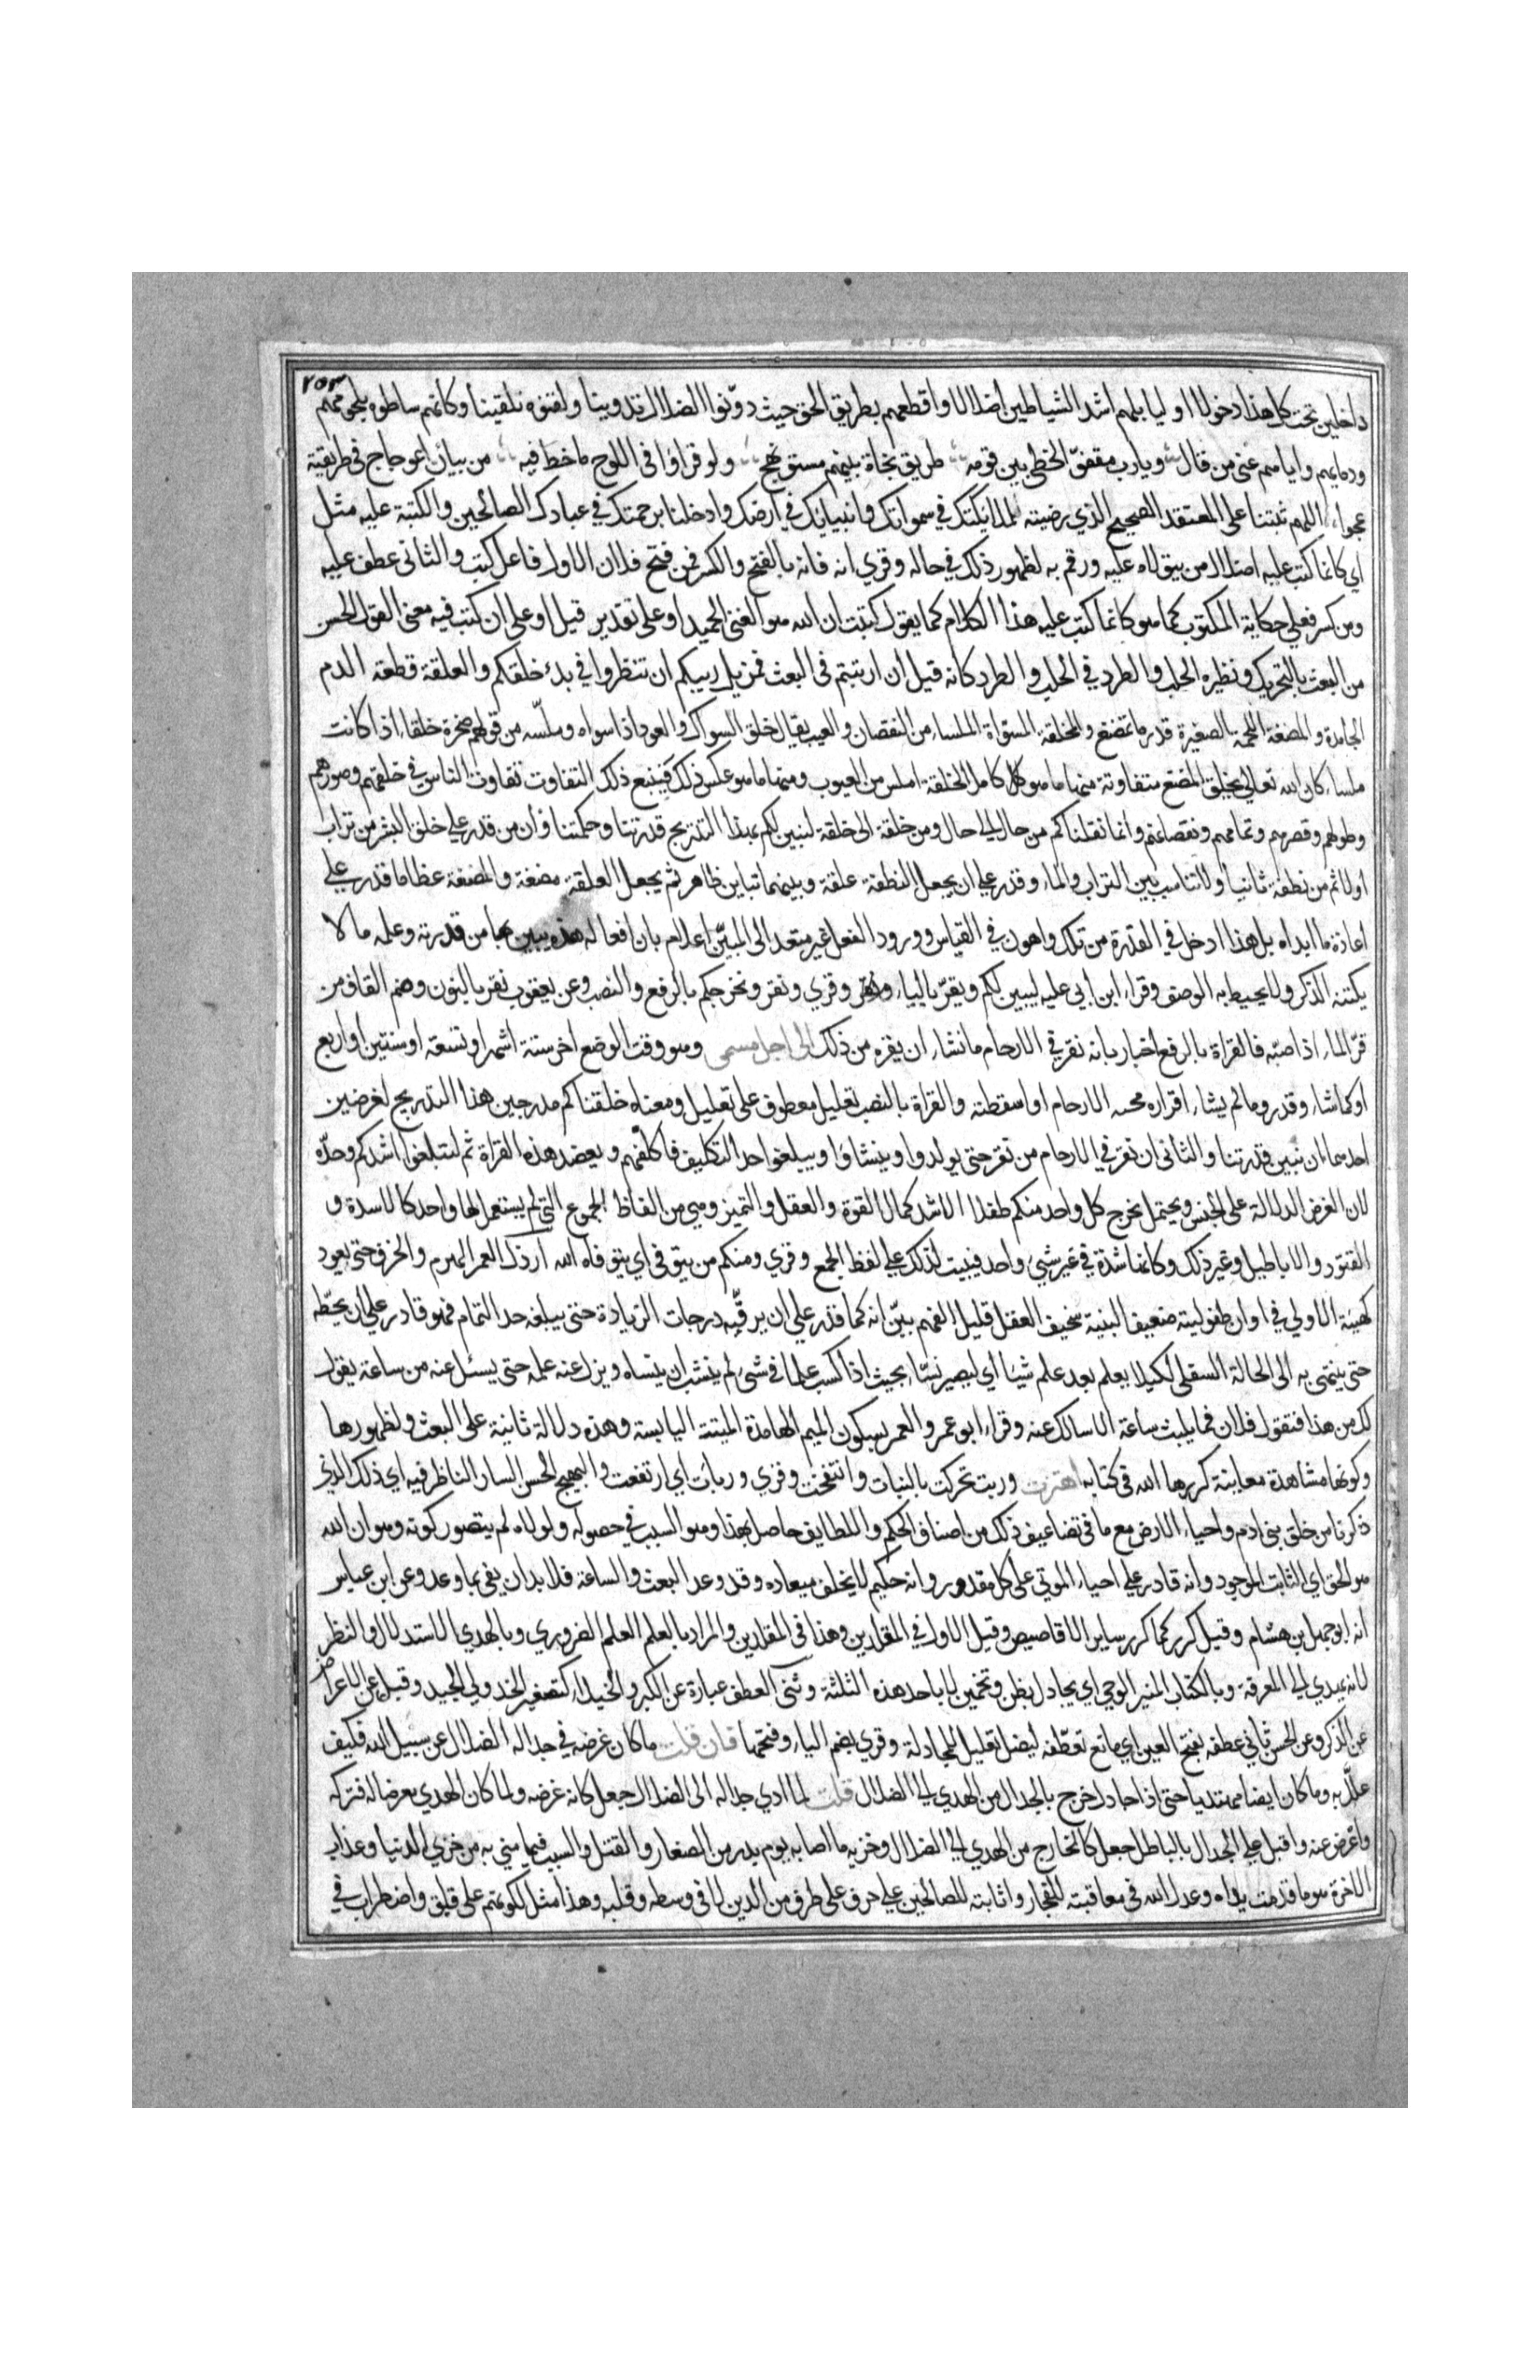 ٢٥٣
داخلين تحت كل هذا دخولا اوليا بل هم اشد الشياطين اضلالا واقطعهم بطريق الحق حيث دوّنوا الضلال تدوينا ولقنوه تلقينا وكأنهم ساطوه بلحومهم
ودمايهم واياهم عنى من قال ويارب مقفوّ الخطى بين قومه طريق نجاة بينهم مستو نهج ولو قراوا في اللوح ما خط فيه من بيان اعوجاج في طريقته
عجوا اللهم ثبتنا على المعتقد الصحيح الذي رضيته لملايكتك في سمواتك وانبيايك في ارضك وادخلنا برحمتك في عبادك الصالحين والكتبة عليه مثل
اي كانما كتب عليه اضلال من يتولاه عليه ورقم به لظهور ذلك في حاله وقري انه فانه بالفتح والكسر فمن فتح فلان الاول فاعل كتب والثاني عطف عليه
ومن كسر فعلي حكاية المكتوب كما هو كانما كتب عليه هذا الكلام كما يقول كتبت ان الله هو الغني الحميد او على تقدير قيل او على ان كتب فيه معنى القول الحسن
من البعث بالتحريك ونظيره الجلب والطرد في الجلب والطرد كانه قيل ان ارتبتم في البعث فمزيل ريبكم ان تنظروا في بدء خلقكم والعلقة قطعة الدم
الجامدة والمضغة اللحمة الصغيرة قدر ما تمضغ والمخلقة المسوّاة الملساء من النقصان والعيب يقال خلق السواك والعود اذا سواه وملّسه من قولهم صخرة خلقاء اذا كانت
ملساء كان الله تعالى يخلق المضغ متفاوتة منها ما هو كامل الخلقة املس من العيوب ومنها ما هو عكس ذلك فيتبع ذلك التفاوت تفاوت الناس في خلقهم وصورهم
وطولهم وقصرهم وتمامهم ونقصانهم وانما نقلناكم من حال الى حال ومن خلقة الى خلقة لنبين لكم بهذا التدريج قدرتنا وحكمتنا وأن من قدر على خلق البشر من تراب
اولا ثم من نطفة ثانيا ولا تناسب بين التراب والماء وقدر على ان يجعل النطفة علقة وبينهما تباين ظاهر ثم يجعل العلقة مضغة والمضغة عظاما قدر على
اعادة ما ابداه بل هذا ادخل في القدرة من تلك واهون في القياس وورود الفعل غير متعد الى المبيّن اعلام بان افعاله هذه يبين بها من قدرته وعلمه ما لا
يكتنه الذكر ولا يحيط به الوصف وقراء ابن ابي عبلة ليبين لكم ويقرّ بالياء وقري ونقر ونخرجكم بالرفع والنصب وعن يعقوب نقر بالنون وضم القاف من
قرّ الماء اذا صبّه فالقراة بالرفع اخبار بانه نقر في الارحام ما نشاء ان يقره من ذلك الى اجل مسمى وهو وقت الوضع اخر ستة اشهر او تسعة او سنتين او اربع
او كما شاء وقدر وما لم يشاء اقراره محته الارحام او اسقطته والقراة بالنصب تعليل معطوف على تعليل ومعناه خلقناكم مدرجين هذا التدريج لغرضين
احدهما ان نبين قدرتنا والثاني ان نقر في الارحام من نقر حتى يولدوا وينشاوا ويبلغوا حد التكليف فاكلفهم ويعضد هذه القراة ثم لتبلغوا اشدكم وحدّه
لان الغرض الدلالة على الجنس ويحتمل نخرج كل واحد منكم طفلا الاشد كمال القوة والعقل والتميز وهي من الفاظ الجموع التي لم يستعمل لها واحد كالاسدة و
القتود والاباطيل وغير ذلك وكانها شدة في غير شيئ واحد فبنيت لذلك على لفظ الجمع وقري ومنكم من يتوفى اي يتوفاه الله ارذل العمر الهرم والخرف حتى يعود
كهيئة الاولي في اوان طفوليته ضعيف البنية سخيف العقل قليل الفهم بيّن انه كما قدر على ان يرقّيه درجات الزيادة حتى يبلغه حد التمام فهو قادر على ان يحطّه
حتى ينتهي به الى الحالة السفلى لكيلا يعلم بعد علم شيئا اي ليصير نسّاء بحيث اذا كسب علما في شيء لم ينشب ان ينساه ويزل عنه علمه حتى يسئل عنه من ساعة يقول
لك من هذا فتقول فلان فما يلبث ساعة الا سالك عنه وقراء ابو عمرو العمر بسكون الميم الهامدة الميتة اليابسة وهذه دلالة ثانية على البعث ولظهورها
وكونها مشاهدة معاينة كررها الله في كتابه اهتزت وربت تحركت بالنبات وانتفخت وقري وربات اي ارتفعت والبهيج الحسن السار الناظر فيه اي ذلك الذي
ذكرنا من خلق بني ادم واحياء الارض مع ما في تضاعيف ذلك من اصناف الحكم واللطايف حاصل بهذا وهو السبب في حصوله ولولاه لم يتصور كونه وهو ان الله
هو الحق اي الثابت الموجود وانه قادر على احياء الموتي على كل مقدور وانه حكيم لا يخلف ميعاده وقد وعد البعث والساعة فلا بد ان يفي بما وعد وعن ابن عباس
انه ابو جهل بن هشام وقيل كرر كما كرر ساير الاقاصيص وقيل الاول في المقلدين وهذا في المقلدين والمراد بالعلم العلم الضروري وبالهدي الاستدلال والنظر
لانه يهدي الى المعرفة وبالكتاب المنير الوحي اي يجادل بظن وتخمين لا باحد هذه الثلثة وثني العطف عبارة عن الكبر والخيلاء كتصغير الخد ولي الجيد وقيل عن الاعراض
عن الذكر وعن الحسن ثاني عطفه بفتح العين اي مانع تعطّفه ليضل تعليل للمجادلة وقري بضم الياء وفتحها فان قلت ما كان غرضه في جداله الضلال عن سبيل الله فكيف
علّل به وما كان ايضا مهتديا حتى اذا جادل خرج بالجدال من الهدي الى الضلال قلت لما ادي جداله الى الضلال جعل كانه غرضه ولما كان الهدي معرضا له فتركه
واعرض عنه واقبل على الجدال بالباطل جعل كالخارج من الهدي الى الضلال وخزيه ما اصابه يوم بدر من الصغار والقتل والسبب فيما مني به من خزي الدنيا وعذاب
الاخرة هو ما قدمت يداه وعدل الله في معاقبته للفجار واثابته للصالحين على حرف على طرف من الدين لا في وسطه وقلبه وهذا مثل لكونهم على قلق واضطراب في